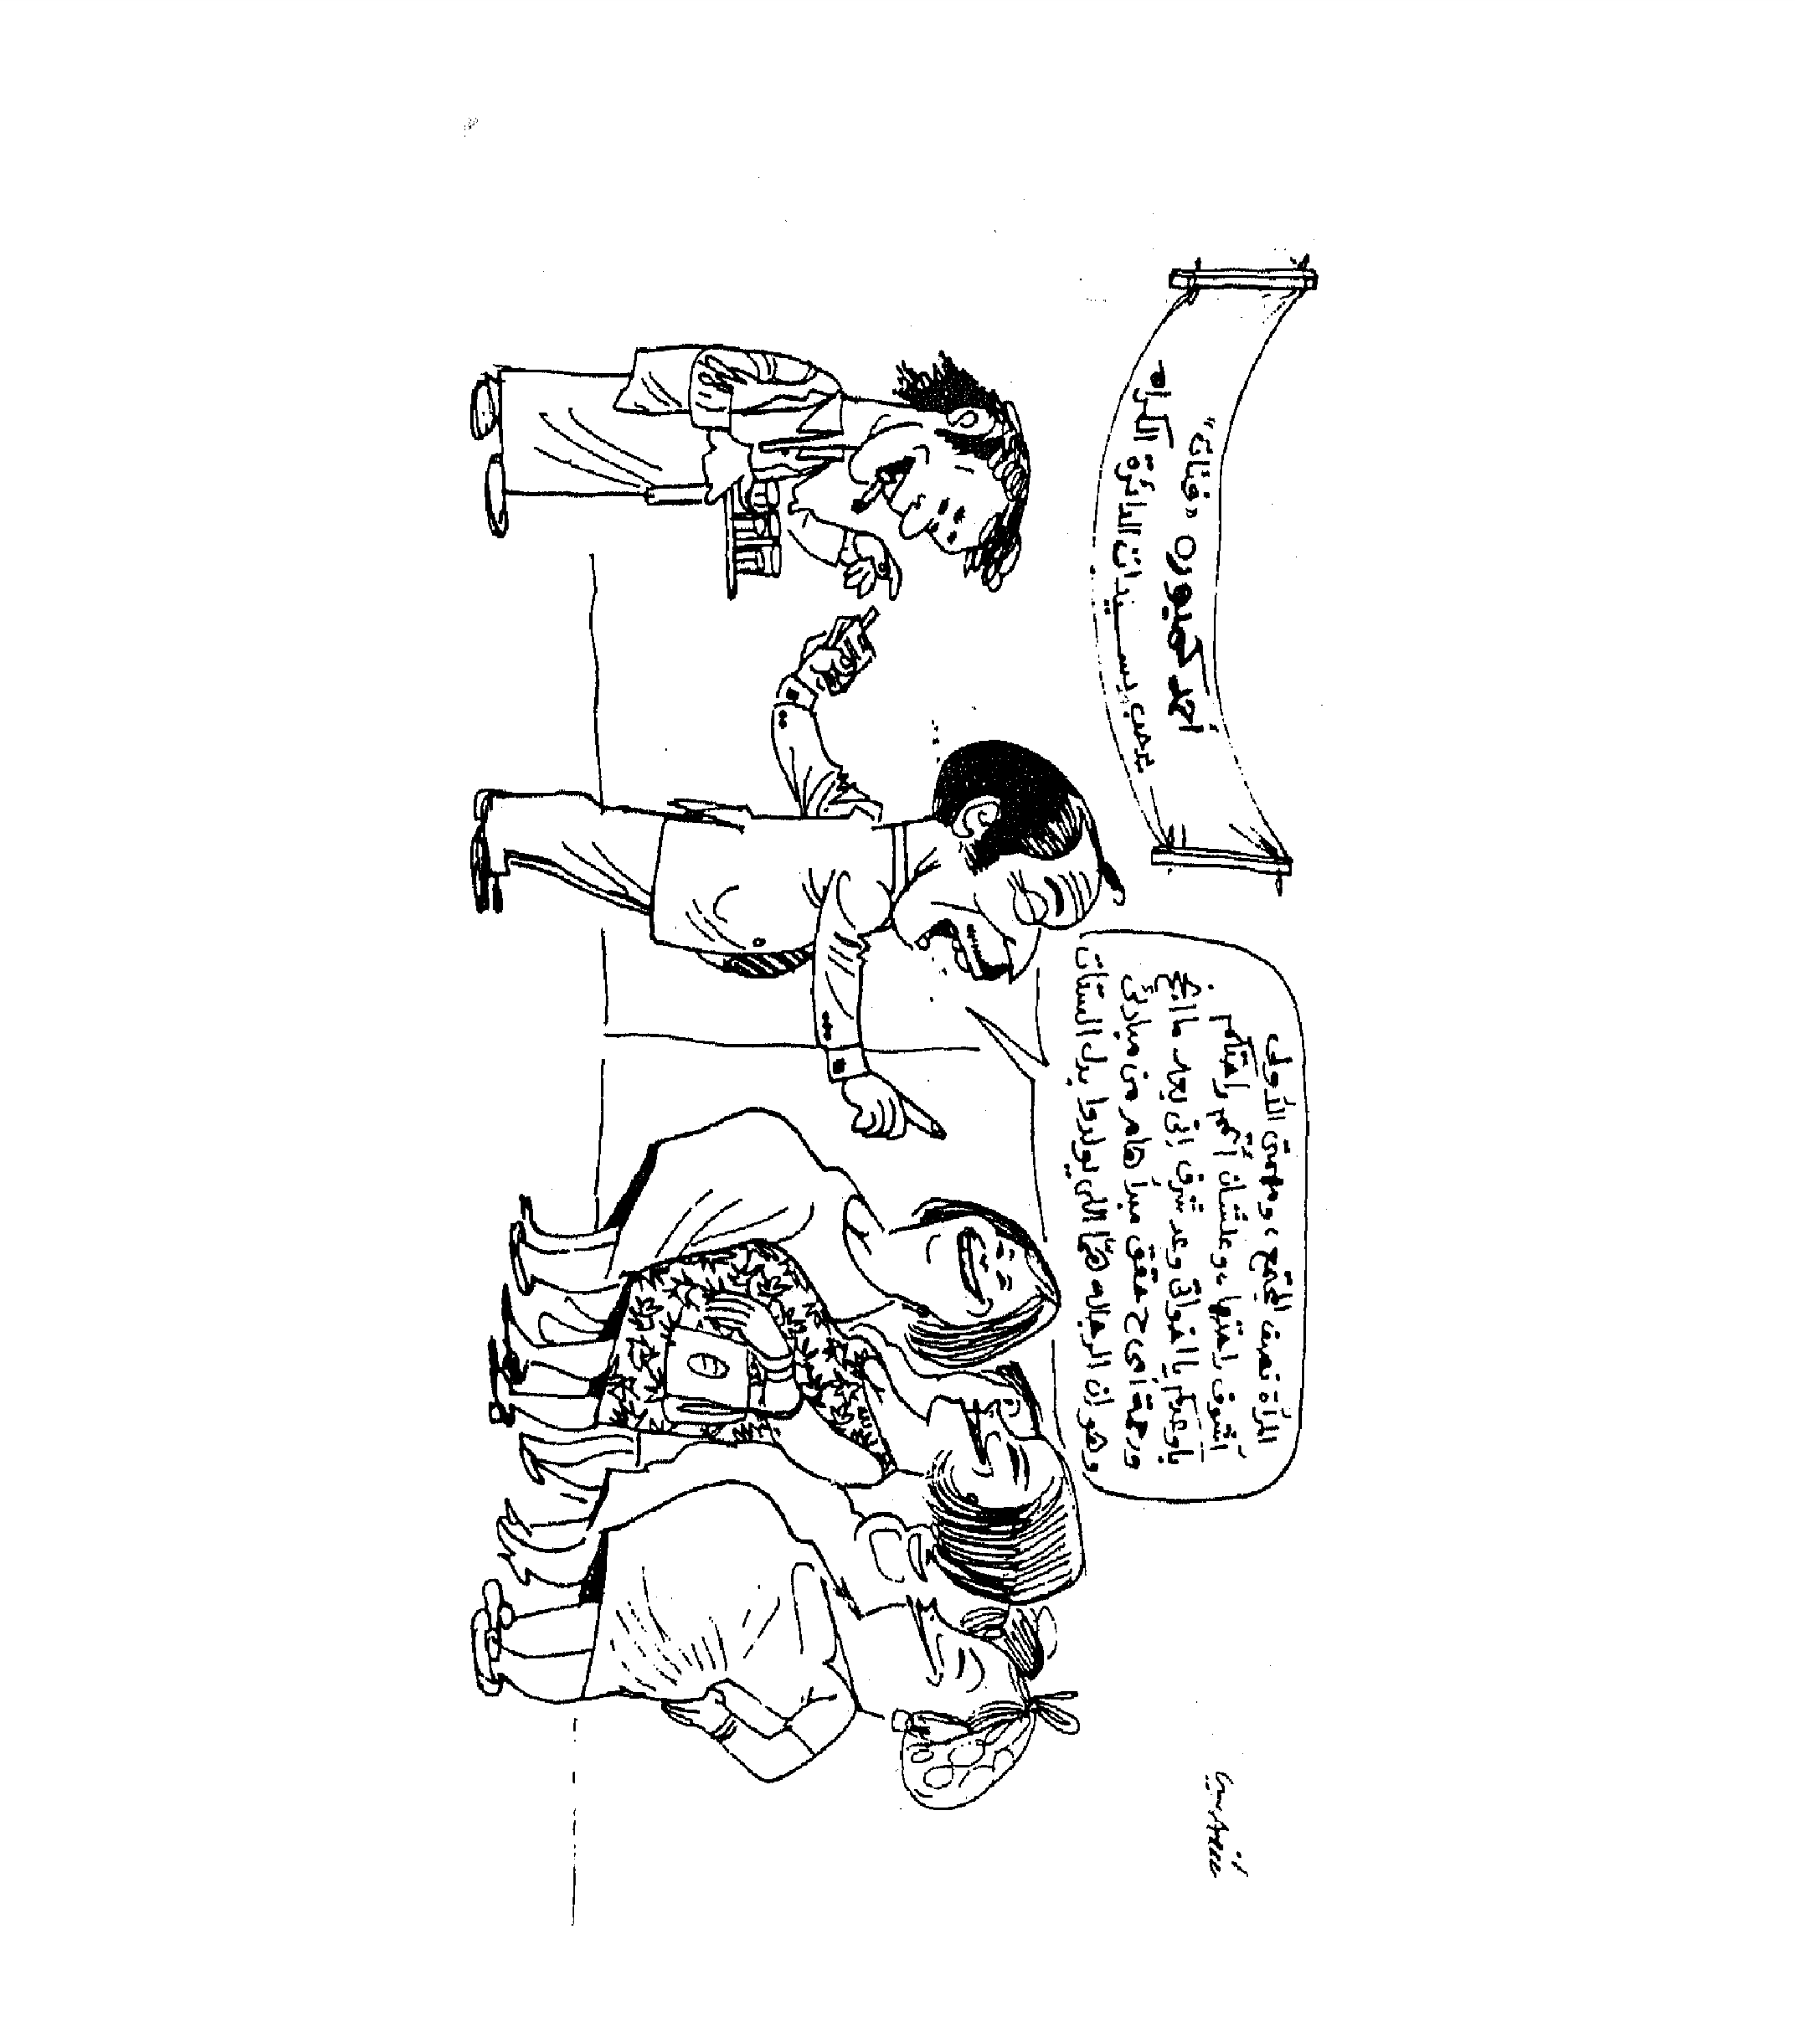 أحمد كمبورة «فئات»
يرحب بسيدات الدائرة الكرام
المرأة نصف المجتمع، وصوتى الأول
أشوف راحتها، وعلشان أكبر راحتكم
باوعدكم بالفوائ وعد شرف إنى بعد ما أنجح
ورحمة أمى ح حقق مبدأ هام من مبادئى
وهو إن الرجاله همَّا اللى يولدوا بدل الستات